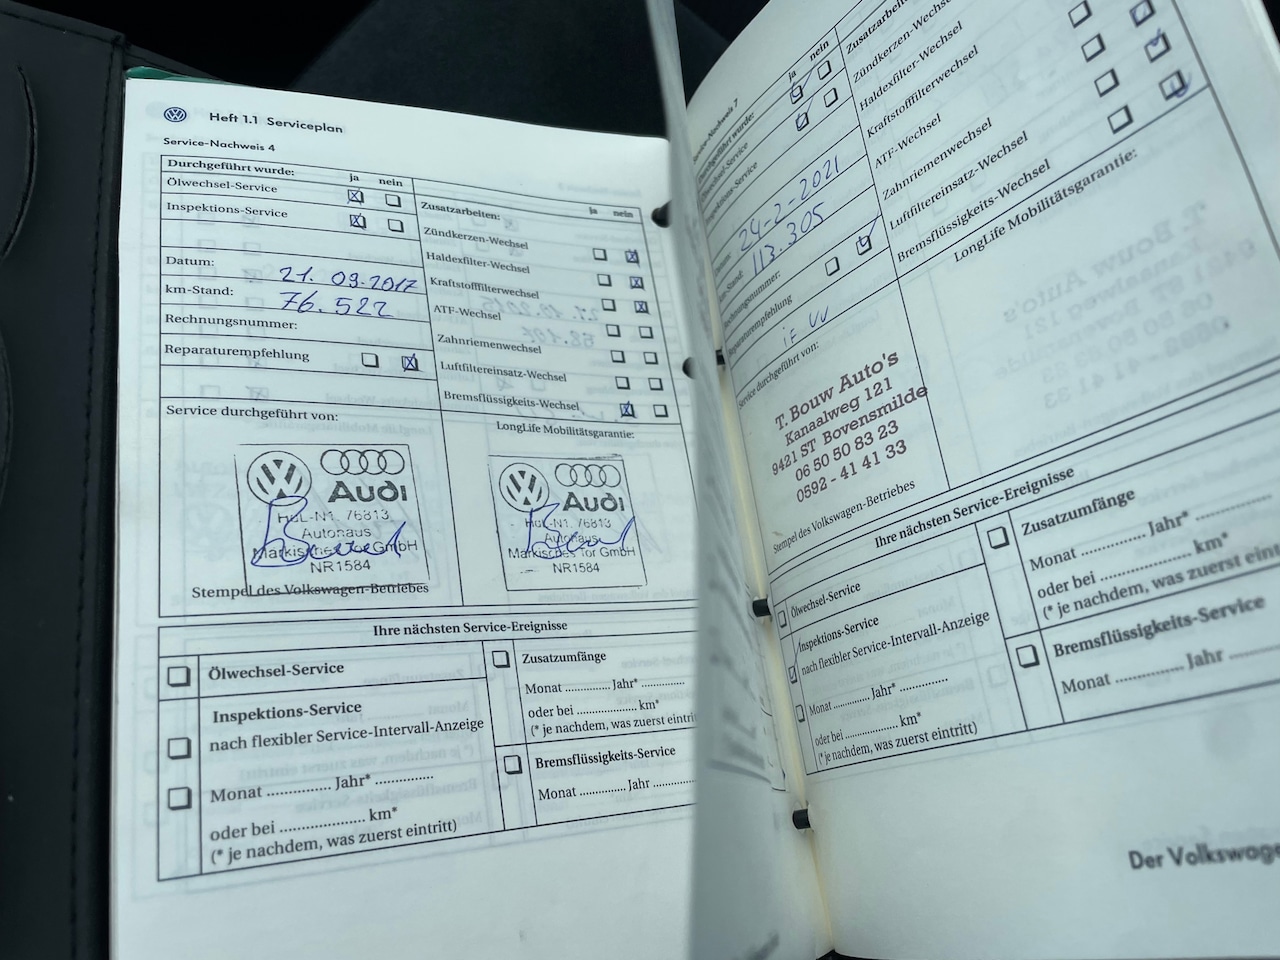 Heft 1.1 Serviceplan
Service-Nachweis 4
Durchgeführt wurde:
ja nein
Ölwechsel-Service
Inspektions-Service
Datum:
21. 09.2017
km-Stand:
76.522
Rechnungsnummer:
Reparaturempfehlung
Zusatzarbeiten:
ja nein
Zündkerzen-Wechsel
Haldexfilter-Wechsel
Kraftstofffilterwechsel
ATF-Wechsel
Zahnriemenwechsel
Luftfiltereinsatz-Wechsel
Bremsflüssigkeits-Wechsel
Service durchgeführt von:
LongLife Mobilitätsgarantie:
Audi
HdL-N1. 76813
Autohaus
Märkisches Tor GmbH
NR1584
Audi
HdL-N1. 76813
Autohaus
Märkisches Tor GmbH
NR1584
Stempel des Volkswagen-Betriebes
Ihre nächsten Service-Ereignisse
Ölwechsel-Service
Inspektions-Service
nach flexibler Service-Intervall-Anzeige
Monat .............. Jahr* ..............
oder bei .................... km*
(* je nachdem, was zuerst eintritt)
Zusatzumfänge
Monat ............. Jahr* .............
oder bei ................. km*
(* je nachdem, was zuerst eintri
Bremsflüssigkeits-Service
Monat ............. Jahr .............
Service-Nachweis 7
wurde:
ja nein
24-2-2021
113.305
Reparaturempfehlung
Zusatzarbeit
Zündkerzen-Wechse
Haldexfilter-Wechsel
Kraftstofffilterwechsel
ATF-Wechsel
Zahnriemenwechsel
Luftfiltereinsatz-Wechsel
Bremsflüssigkeits-Wechsel
Service durchgeführt von:
LongLife Mobilitätsgarantie:
T. Bouw Auto's
Kanaalweg 121
9421 ST Bovensmilde
06 50 50 83 23
0592 - 41 41 33
Stempel des Volkswagen-Betriebes
Ihre nächsten Service-Ereignisse
Ölwechsel-Service
Inspektions-Service
nach flexibler Service-Intervall-Anzeige
Monat ............ Jahr* ............
oder bei .................. km*
(* je nachdem, was zuerst eintritt)
Zusatzumfänge
Monat .............. Jahr* ..............
oder bei .................... km*
(* je nachdem, was zuerst eint
Bremsflüssigkeits-Service
Monat .............. Jahr ..............
Der Volkswage